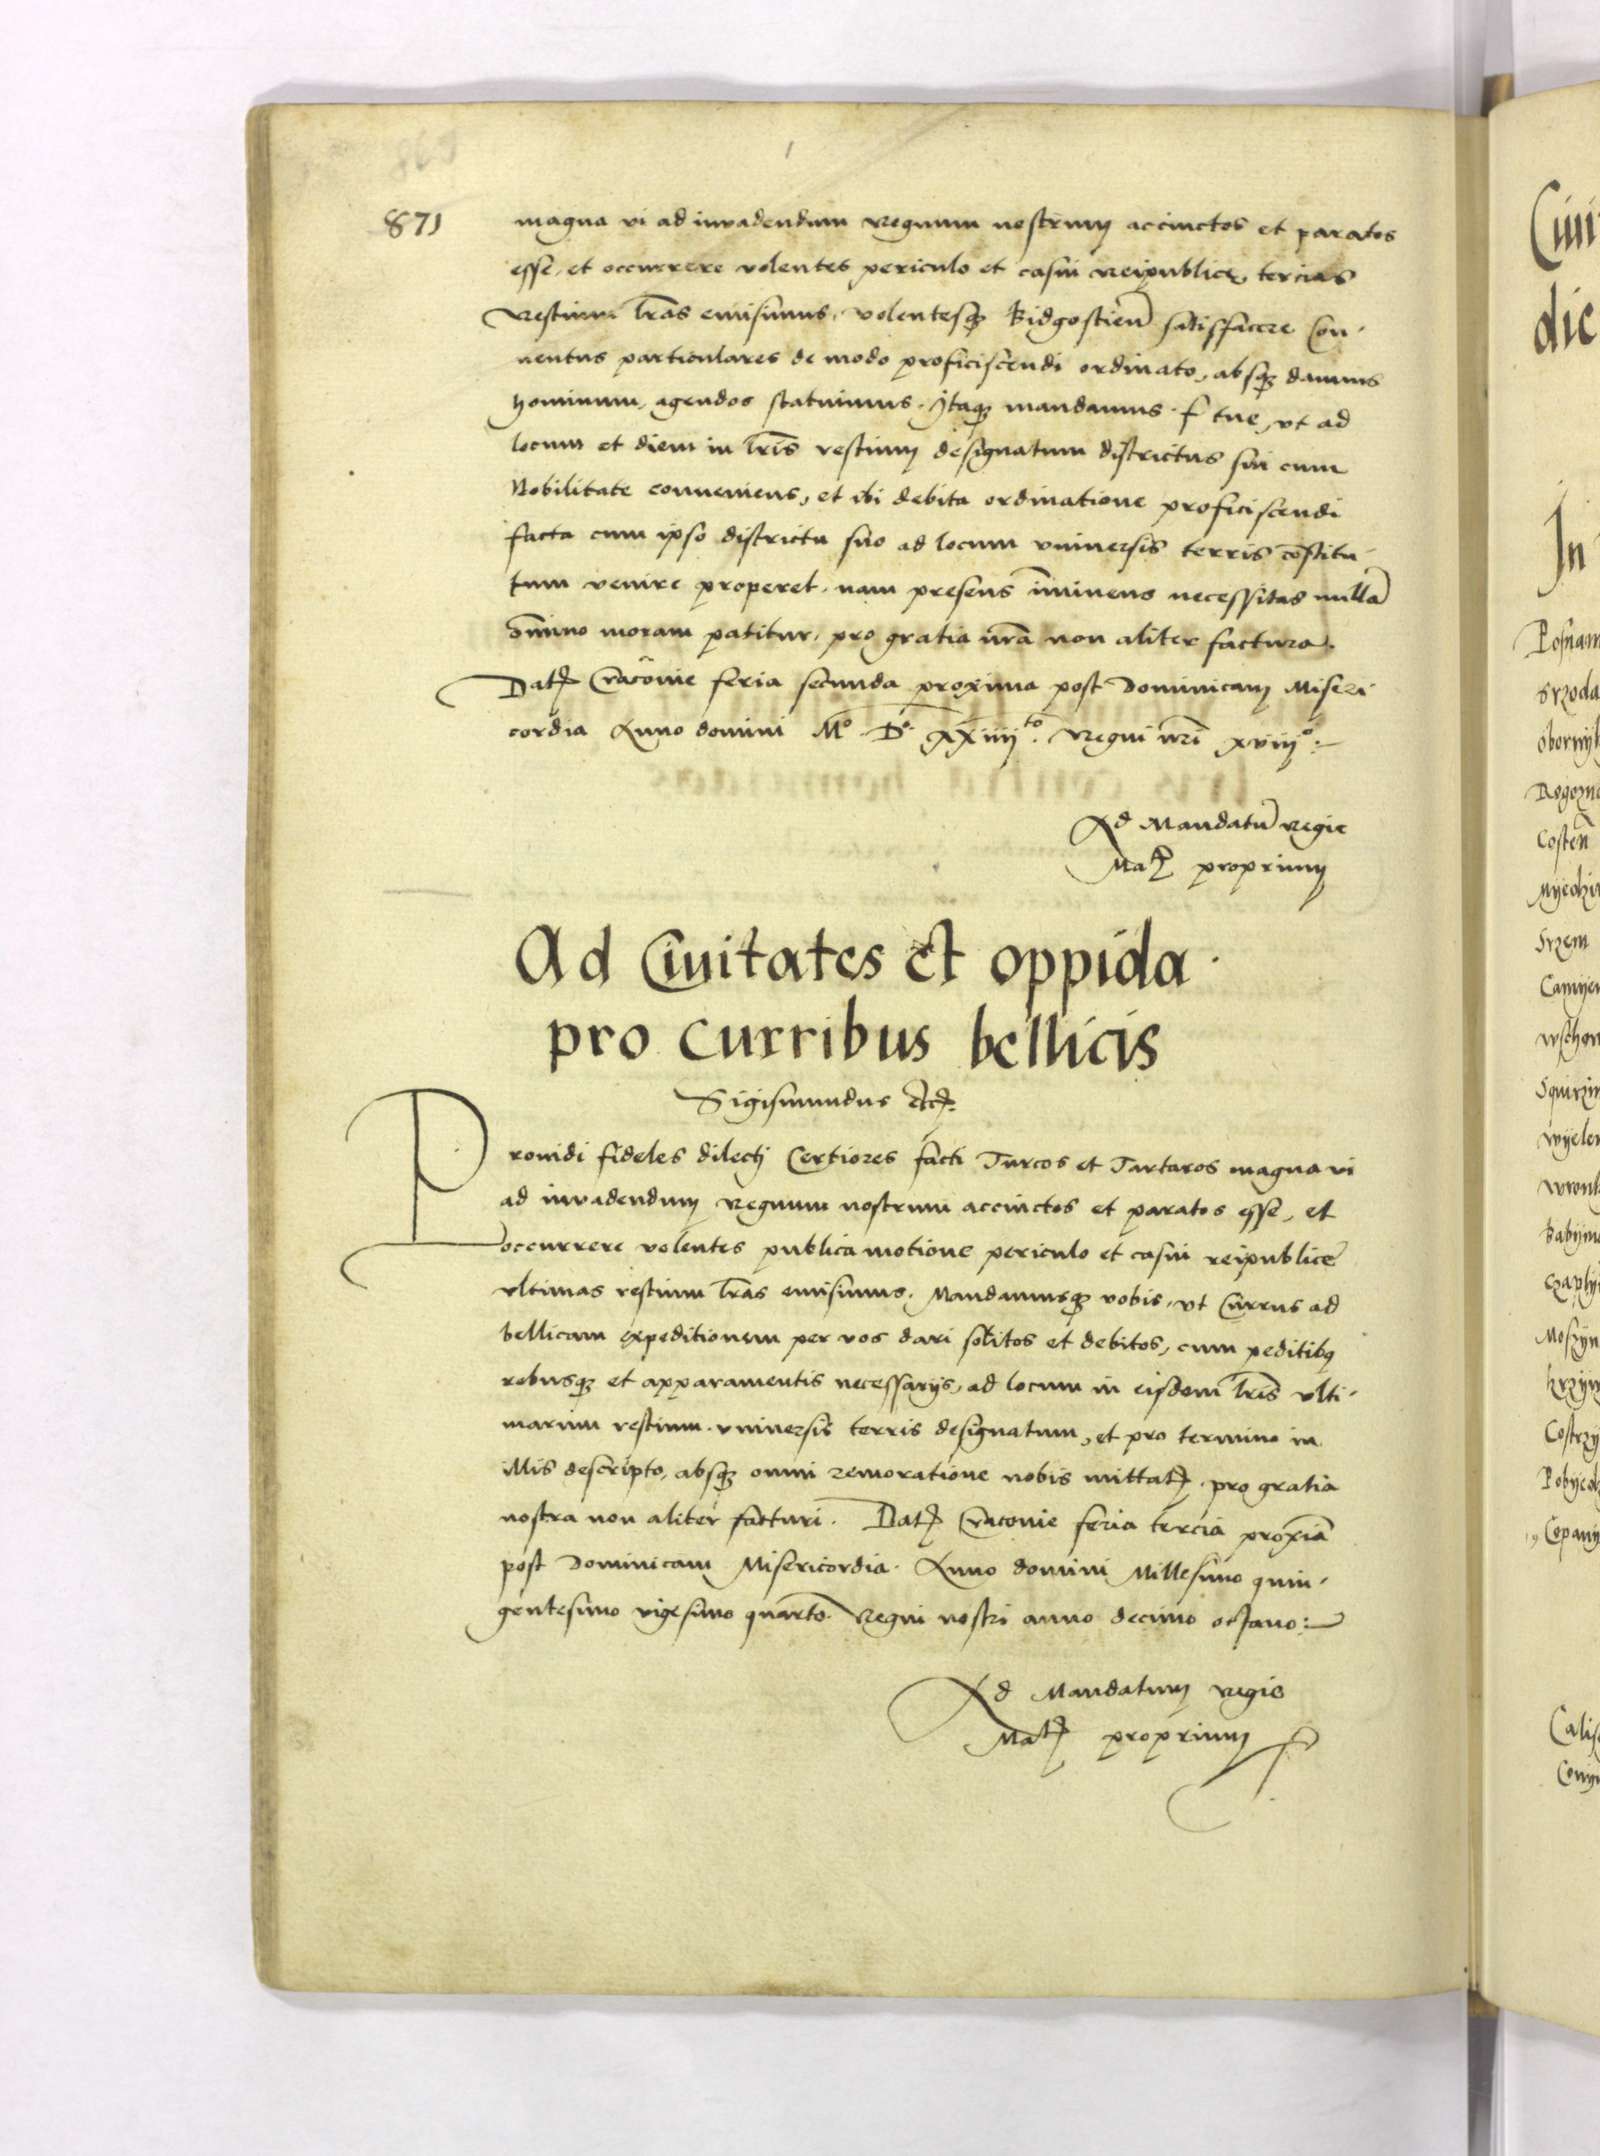 871
magna vi ad invadendum Regnum nostrum accinctos et paratos
esse, et occurrere volentes periculo et casui Reipublice, tercias
Restium l̅ras emisimus, volentesq̨ Bidgostien̅ satisfacere Con-
uentus particulares de modo proficiscendi ordinato, absq̨ damnis
hominum, agendos statuimus. Itaq̨ mandamus f tue, vt ad
locum et diem in l̅ris restium designatum districtus sui cum
Nobilitate conueniens, et ibi debita ordinatione proficiscendi
facta cum ipso districtu suo ad locum vniuersis terris co̅stitu-
tum venire properet. nam presens i̅minens necessitas nulla̅
o̅mino moram patitur, pro gratia n̅ra non aliter factura.
Datꝭ Craco̅uie feria secunda proxima post Dominicam Miseri
cordia Anno domini Mº. Dº. XXiiiiᵗº. Regni n̅ri xviijº:—
Ad Mandatu̅ regie
Matꝭ proprium
Ad Ciuitates et oppida
pro curribus bellicis
Sigismundus etcꝭ
Prouidi fideles dilecti Certiores facti Turcos et Tartaros magna vi
ad invadendum Regnum nostrum accinctos et paratos esse, et
occurrere volentes publica motione periculo et casui reipublice
vltimas restium l̅ras emisimus. Mandamusq̨ vobis, vt Currus ad
bellicam expeditionem per vos dari solitos et debitos, cum peditibꝰ
rebusq̨ et apparamentis necessarijs, ad locum in eisdem l̅ris vlti-
marum restium vniuersis terris designatum, et pro termino in
illis descripto, absq̨ omni remoratione nobis mittatꝭ pro gratia
nostra non aliter facturi. Datꝭ Craconie feria tercia proxi̅a
post Dominicam Misericordia. Anno domini Millesimo quin-
gentesimo vigesimo quarto. Regni nostri anno decimo octauo:—
Ad Mandatum regie
Matꝭ proprium
Ciui
dic
In
Posnam
Srzoda
Obornyk
Rogozno
Costen̅
Srzem
Camyen
Wschow
wyelen
wronk
Babymo
Costrzy
Calis